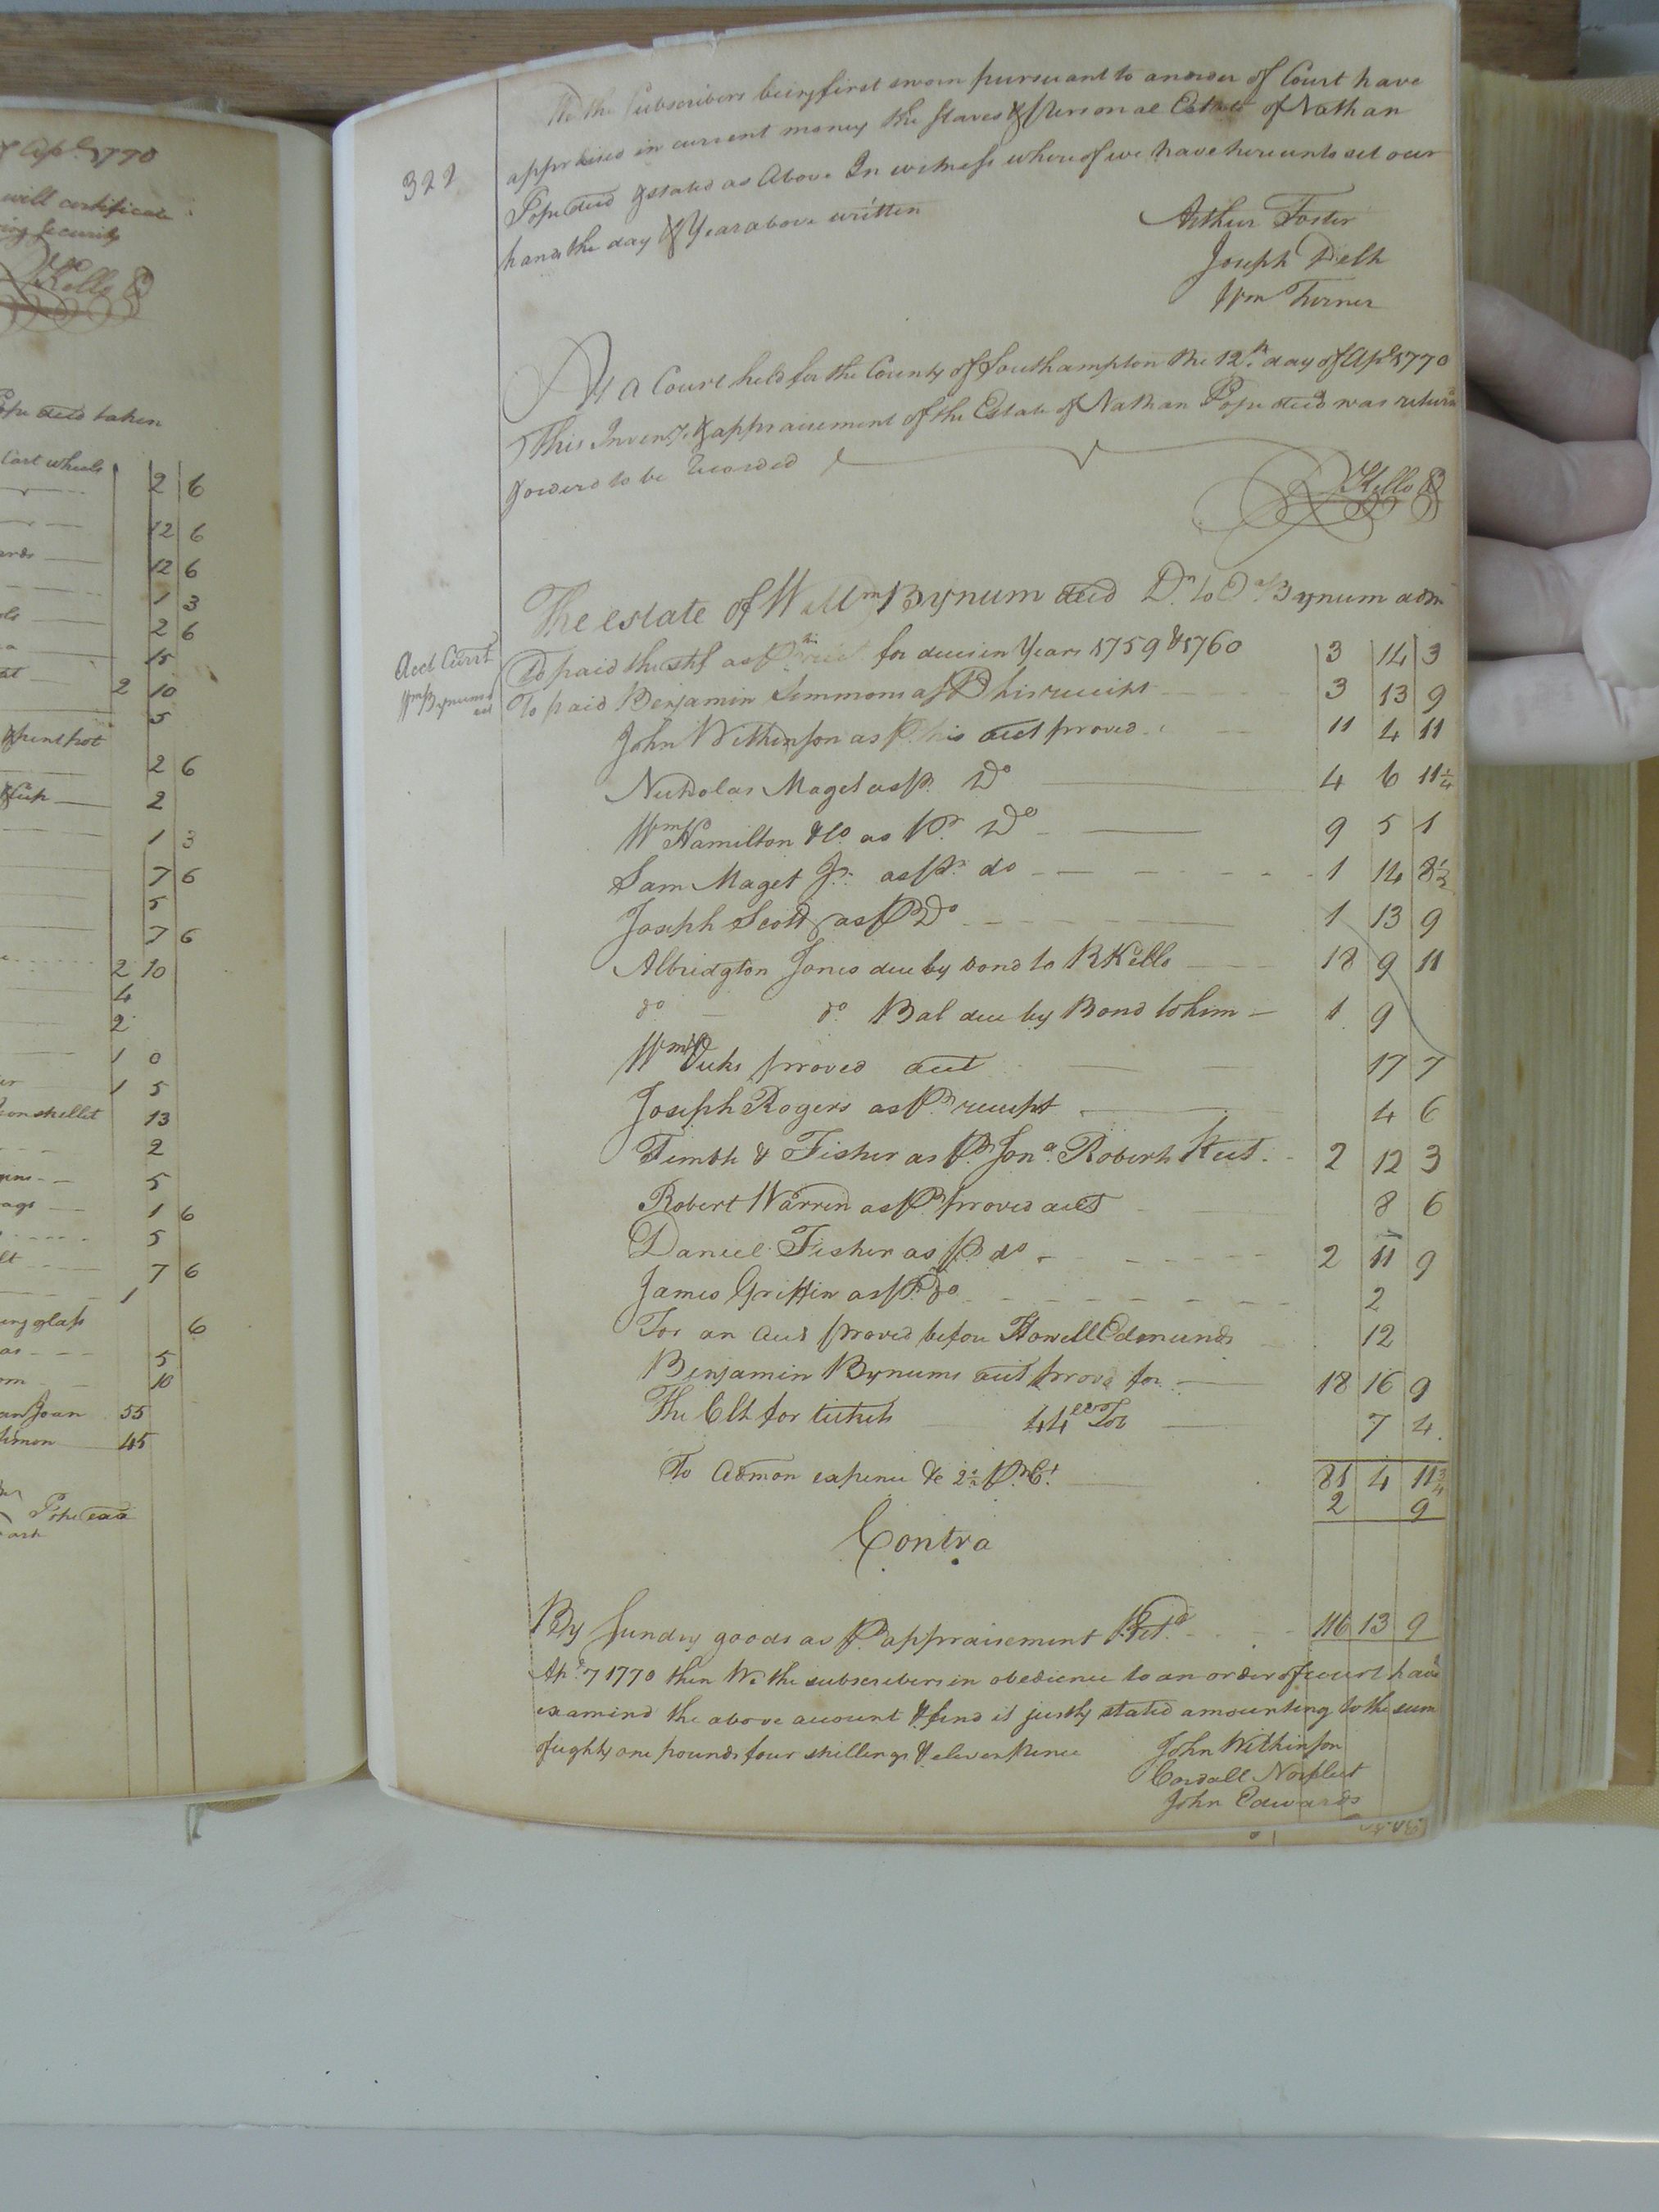 of Apl. 1770
will certificate
ing Security
Kello
Pope decd taken
Cart wheels 2 6
12 6
ards 12 6
1 3
2 6
15
2 10
5
& pent pot
2 6
2
1 3
7 6
5
7 6
2 10
4
2
1 0
1 5
Iron skellet 13
2
5
1 6
5
7 6
1
ing glass 6
5
10
Joan 55
Simon 45
Pope
322
We the Subscribers being first sworn pursuant to an order of Court have
appraised in current money the Slaves & Personal Estate of Nathan
Pope decd & stated as Above In witness whereof we have hereunto set our
hands the day & Year above written
Arthur Foster
Joseph Delk
Wm Turner
At a Court held for the County of Southampton the 12th day of Apl 1770
This Inventy. & appraisement of the Estate of Nathan Pope decd was returnd
& orderd to be Recorded
RKello
The estate of Willm Bynum decd Dr. to Bynum adm
Acct Currt
Wm Bynums est
To paid the shf as for dues in Years 1759 & 1760 3 14 3
To paid Benjamin Simmons as Pr his receipt 3 13 9
John Wilkinson as Pr his acct proved 11 4 11
Nicholas Maget as Pr. Do 4 6 11 1/4
Wm Hamilton & Co as Pr. Do 9 5 1
Sam Maget Jr. as Pr. do 1 14 8 1/2
Joseph Scott as Pr Do 1 13 9
Albridgton Jones due by bond to RKello 18 9 11
do do Bal due by Bond to him 1 9
Wm proved acct 17 7
Joseph Rogers as Pr receipt 4 6
& Fisher as Pr. Jona. Roberts Rect. 2 12 3
Robert Warren as Pr proved acct 8 6
Daniel Fisher as Pr do 2 11 9
James Griffin as Pr. Do 2
For an acct proved before Howell Edmunds 12
Benjamin Bynums acct provd for 18 16 9
The Clk for tickets 44 lbs Tob 7 4
81 4 11 3/4
To admon expence &c 2 1/2 Pr. Ct. 2 9
Contra
By Sundry goods as Pr appraisement Retd 116 13 9
Apl. 7 1770 then We the subscribers in obedience to an order of court have
examind the above account & find it justly stated amounting to the sum
of eighty one pounds four shillings & eleven Pence
John Wilkinson
Cordall Norfleet
John Edwards